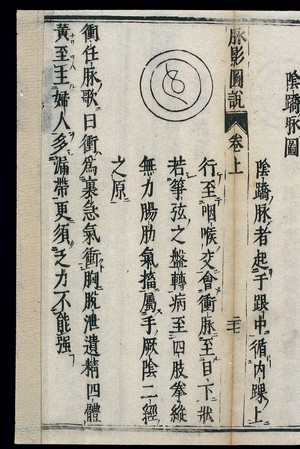 陰蹻脉圖
陰蹻脉者起于跟中循內踝上
脉影圖說 卷上 二七
行至咽喉交會衝脉至目下狀
若箏弦之盤轉病至四肢拳縱
無力腸肋氣搐屬手厥陰二經
之原
衝任脉歌曰衝爲裏急氣衝胸脫泄遺精四體
黃至王婦人多漏帶更須乏力不能强